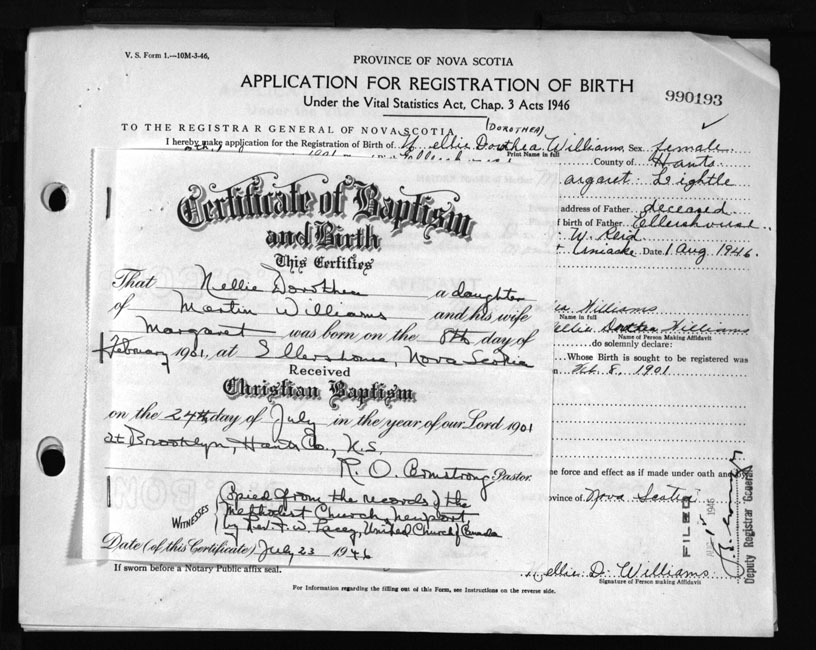 V. S. Form 1.—10M-3-46.
PROVINCE OF NOVA SCOTIA
APPLICATION FOR REGISTRATION OF BIRTH
Under the Vital Statistics Act, Chap. 3 Acts 1946
990193
TO THE REGISTRAR GENERAL OF NOVA SCOTIA
(DOROTHEA)
I hereby make application for the Registration of Birth of Nellie Dorothea Williams Sex female
Print Name in full
County of Hants
argaret Lightle
address of Father deceased
f birth of Father Ellershouse
W. Reid
Uniacke Date 1 Aug. 1946.
Certificate of Baptism
and Birth
This Certifies
That Nellie Dorothea a daughter
of Martin Williams and his wife
Margaret was born on the 8th day of
February 1901, at Ellershouse, Nova Scotia
Received
Christian Baptism
on the 24th day of July in the year of our Lord 1901
at Brooklyn, Hants Co., N.S.
R. O. Armstrong Pastor.
WITNESSES
Copied from the records of the
Methodist Church, Newport
by Rev. F. W. Lacey, United Church of Canada
Date (of this Certificate) July 23 1946
Williams
Name in full
Nellie Williams
Name of Person Making Affidavit
do solemnly declare:
Whose Birth is sought to be registered was
Feb. 8, 1901
e force and effect as if made under oath and by
ovince of Nova Scotia
FILED
1946
Deputy Registrar General
Nellie D. Williams
Signature of Person making Affidavit
If sworn before a Notary Public affix seal.
For Information regarding the filling out of this Form, see Instructions on the reverse side.